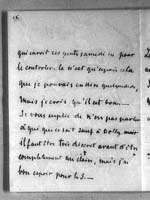 qui avait ces gants samedi en pour
le controler. Ce n'est qu'après cela
que je pourrais en dire quelquechose,
Mais je crois qu'il est bon.—
Je vous supplie de n'en pas parler
à qui que ce soit sauf à Dolly, mais
il faut être très discret avant d'être
complètement au clair, mais j'ai
bon espoir pour le S.—